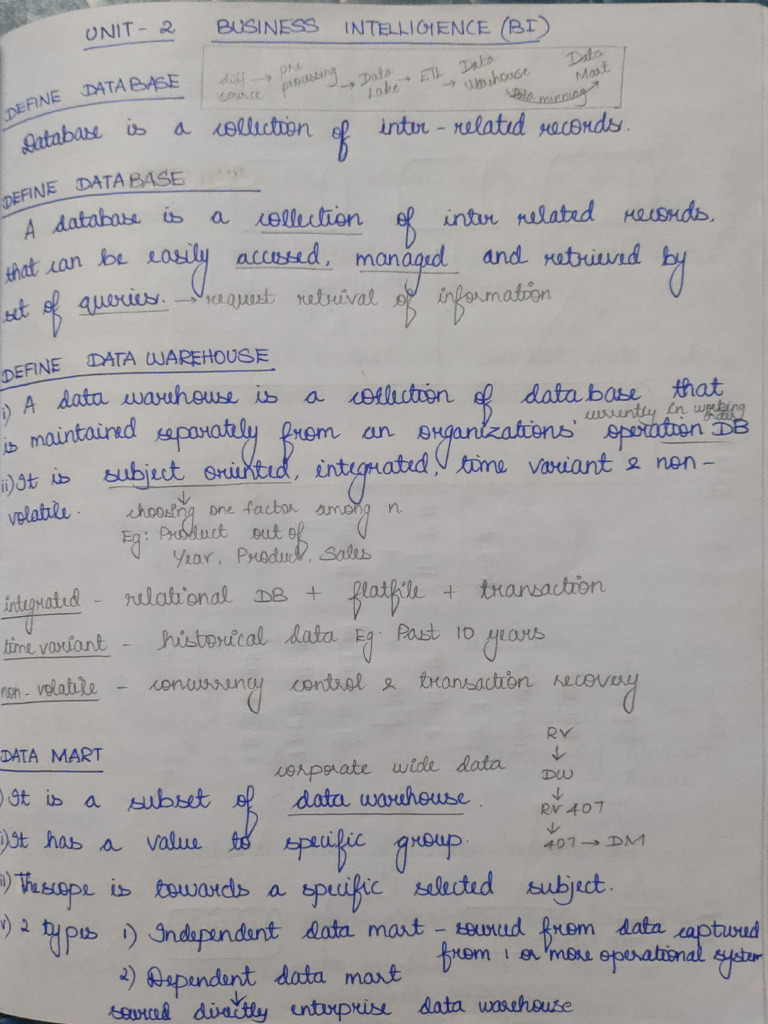 UNIT - 2 BUSINESS INTELLIGIENCE (BI)
diff source → pre processing → Data Lake → ETL → Data Warehouse Data minning → Data Mart
DEFINE DATABASE
Database is a collection of inter-related records.
DEFINE DATABASE
A database is a collection of inter related records,
that can be easily accessed, managed and retrieved by
set of queries. → request retrival of information
DEFINE DATA WAREHOUSE
i) A data warehouse is a collection of database that
currently in working order
is maintained separately from an organizations' operation DB
ii) It is subject oriented, integrated, time variant & non-
volatile. ↓ choosing one factor among n.
Eg: Product out of
Year, Product, Sales
integrated - relational DB + flatfile + transaction
time variant - historical data Eg: Past 10 years
non-volatile - concurrency control & transaction recovery
DATA MART
corporate wide data
RV
↓
DW
↓
RV 407
↓
407 → DM
) It is a subset of data warehouse.
i) It has a value to specific group.
ii) The scope is towards a specific selected subject.
v) 2 types 1) Independent data mart - sourced from data captured
from 1 or more operational system
2) Dependent data mart
↓
sourced directly enterprise data warehouse